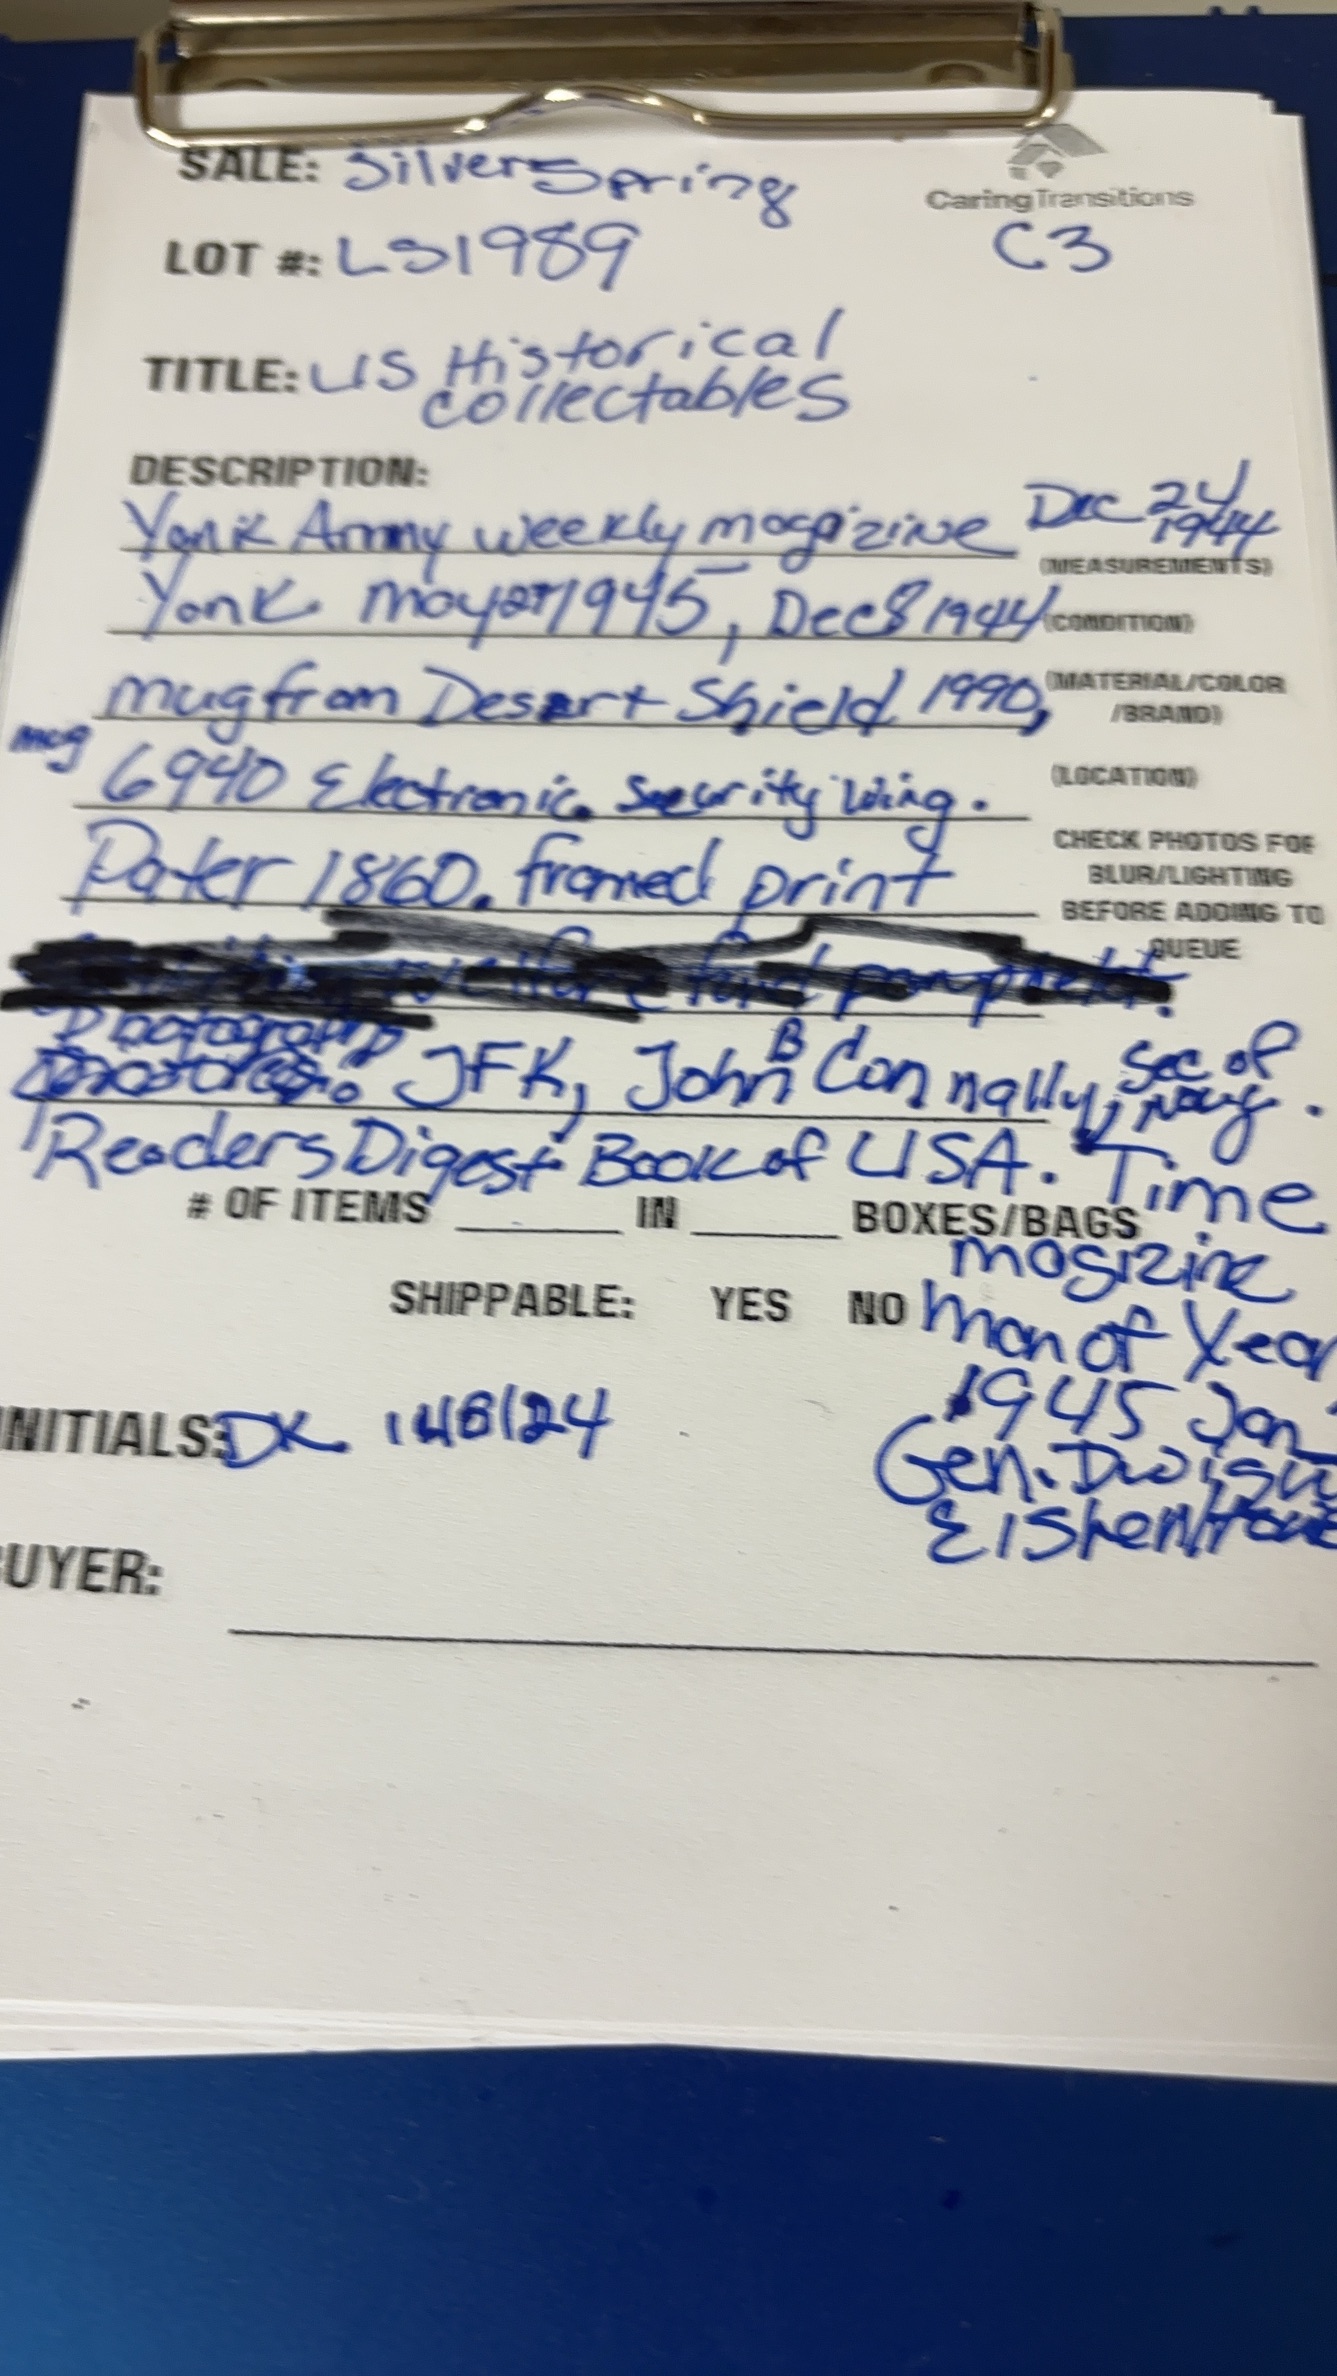 SALE: Silver Spring
CaringTransitions
LOT #: LS1989
C3
TITLE: US Historical
collectables
DESCRIPTION:
Yank Army weekly magizine Dec 24
1944
(MEASUREMENTS)
Yank May 1945, Dec 8 1944
(CONDITION)
mug from Desert Shield 1990,
(MATERIAL/COLOR
/BRAND)
mug
6940 Electronic Security Wing.
(LOCATION)
1860. framed print
CHECK PHOTOS FOR
BLUR/LIGHTING
BEFORE ADDING TO
QUEUE
Photographs
JFK, John B Connally, Sec of
Navy.
Readers Digest Book of USA. Time
# OF ITEMS ______ IN ______ BOXES/BAGS
magizine
SHIPPABLE: YES NO
Man of Year
1945 Jan
NITIALS: DK
Gen.
UYER: